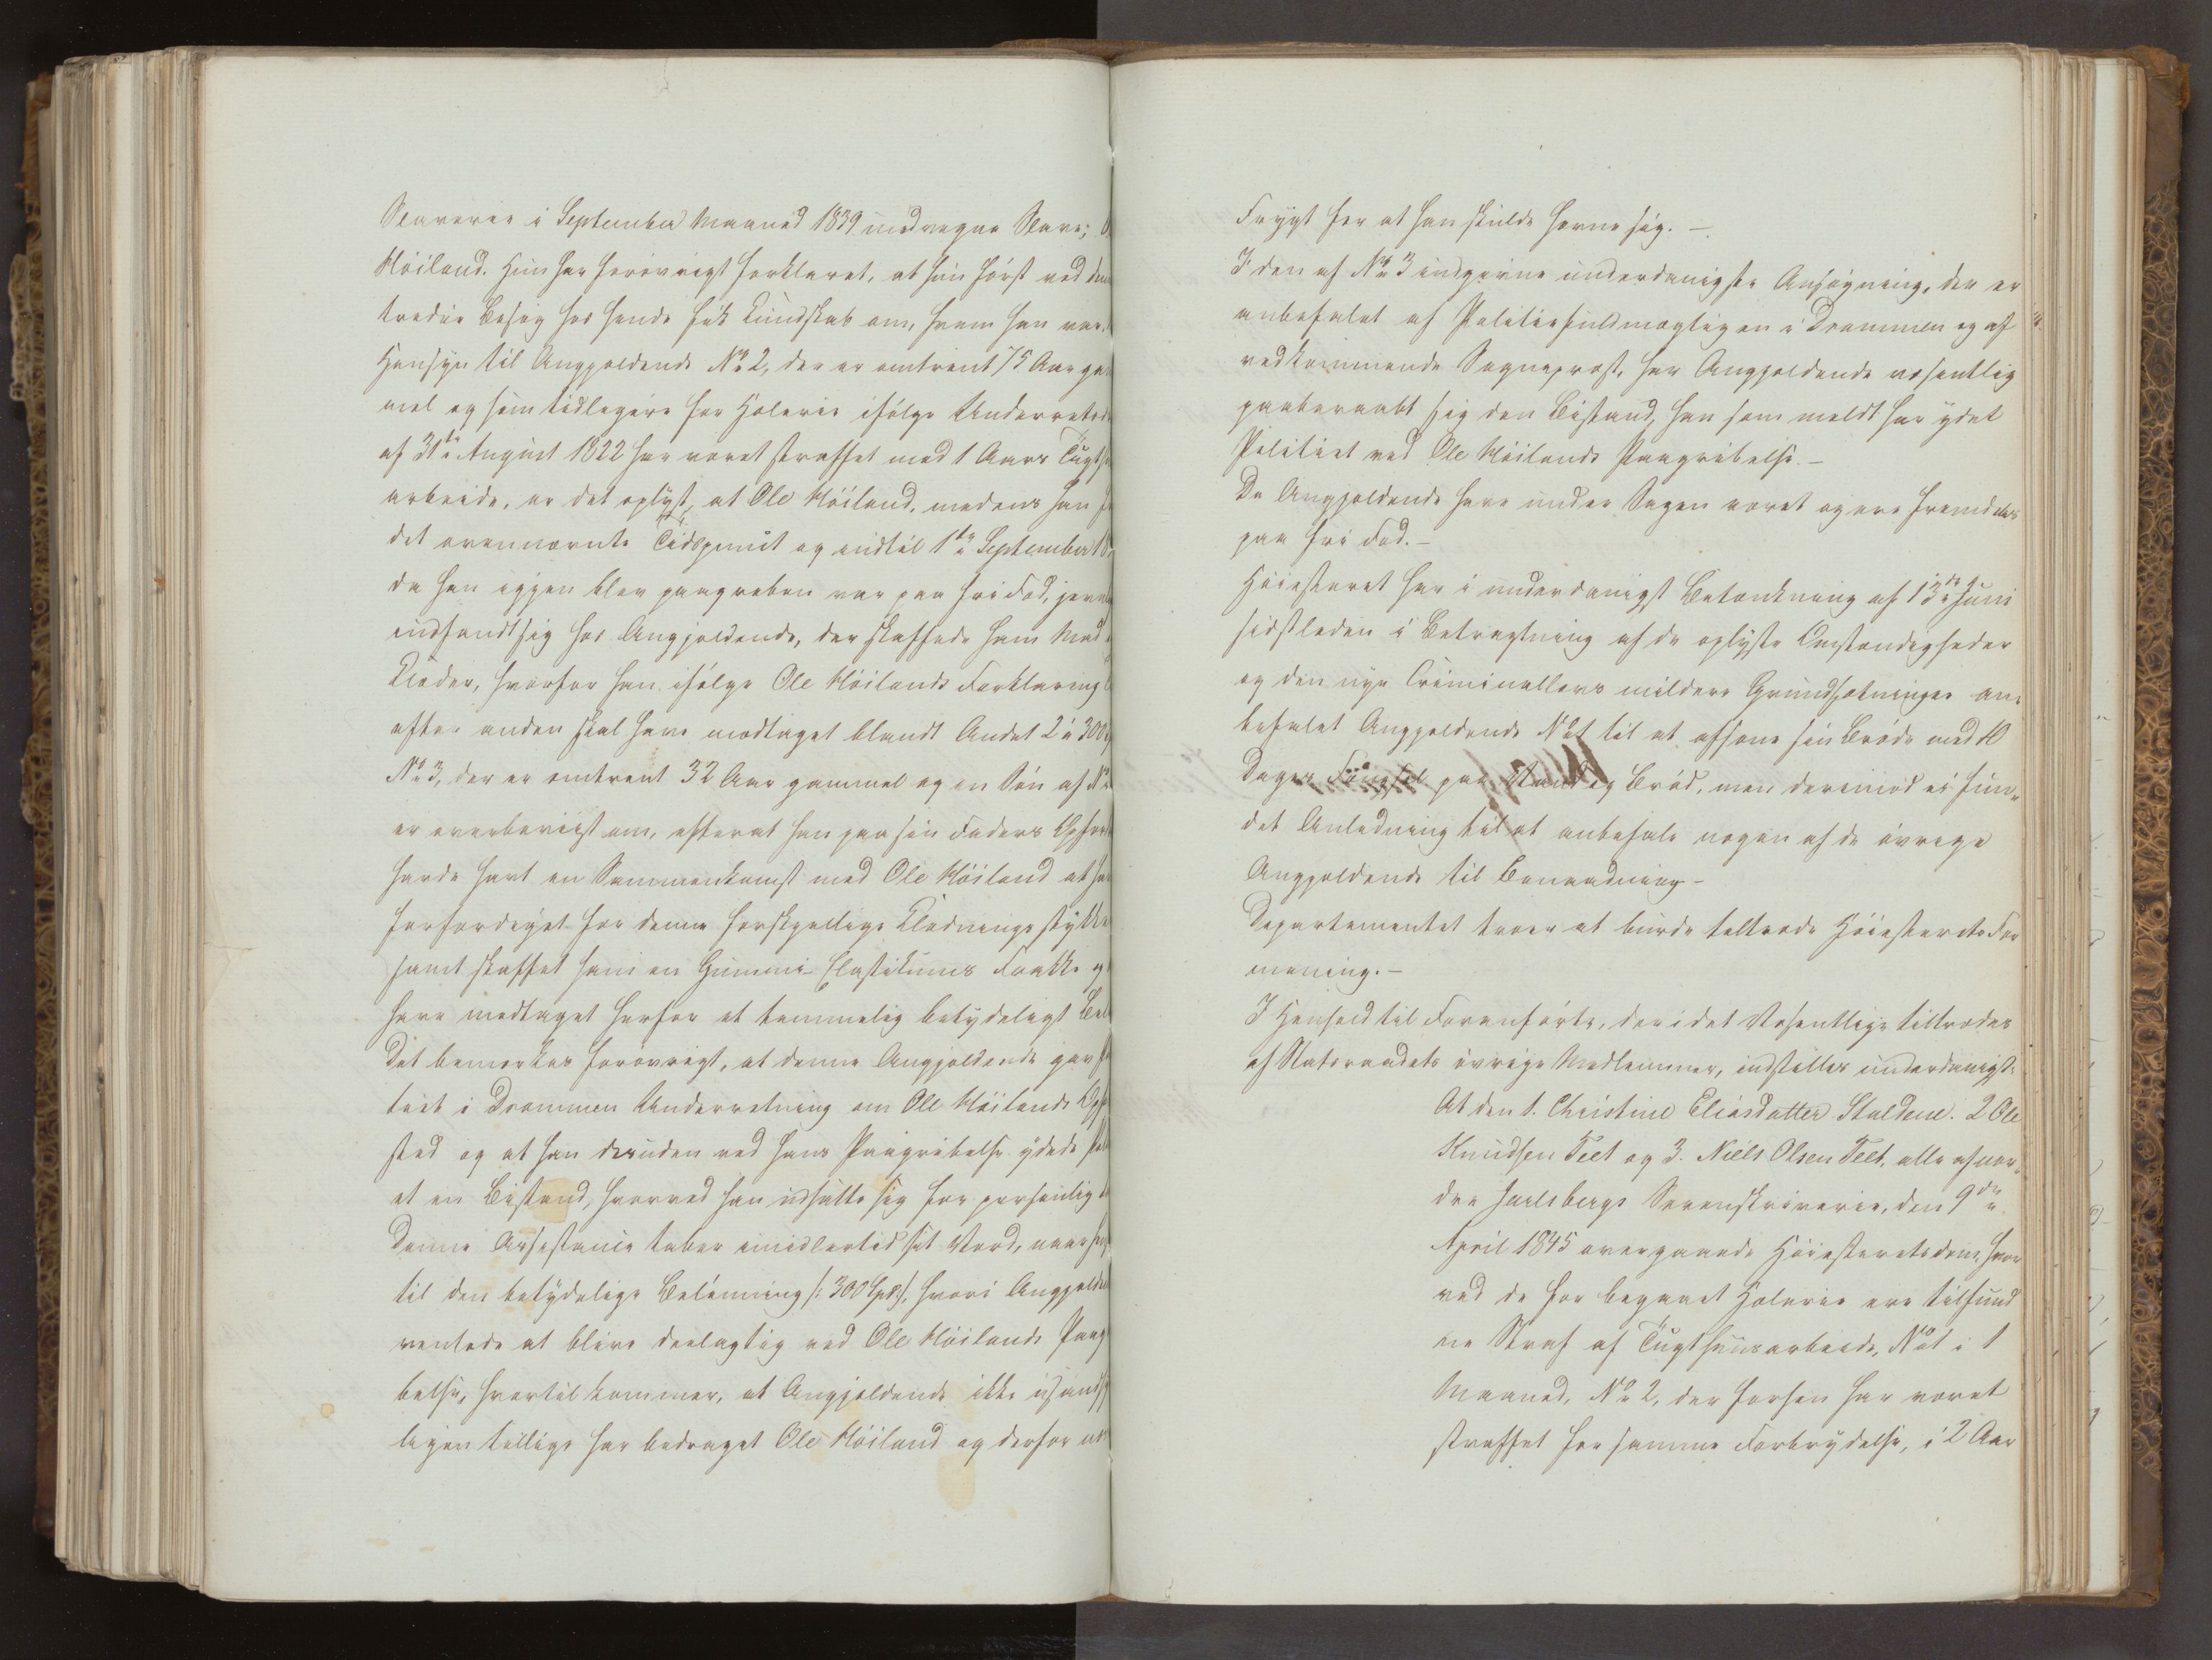 Slaveriet i September Maaned 1839 undvegne Slave; O
Höiland. Hun har forövrigt forklaret, at hun först ved den
tredie Besög hos hende fik Kundskab om, hvem han var.
Hensyn til Angjeldende No 2, der er omtrent 75 Aar gam
mel og som tidligere for Hæleri ifölge Underrets
af 31te August 1822 har været straffet med 1 Aars Tugth
arbeide, er det oplyst, at Ole Höiland, medens han
det ovennævnte Tidspunkt og indtil 1ste September
da han igjen blev paagreben var paa fri Fod, jevnl
indfandt sig hos Angjeldende, der skaffede ham Mad
Klæder, hvorfor han ifölge Ole Höilands Forklaring
efter anden skal have modtaget blandt Andet 2 à 300
No 3, der er omtrent 32 Aar gammel og en Sön af No
er overbeviist om, efterat han paa sin Faders Opford
havde havt en Sammenkomst med Ole Höiland at ha
forfærdiget for denne forskjellige Klædningsstykke
samt skaffet ham en Gummi Elastikums Frakke og
have modtaget herfor et temmelig betydeligt Bel
Det bemærkes forövrigt, at denne Angjeldende gav
tiet i Drammen Underretning om Ole Höilands Op
sted og at han desuden ved hans Paagribelse ydede Pol
et en Bistand, hvorved han udsatte sig for personlig
Denne Assistance taber imidlertid sit Værd, naar
til den betydelige Belönning /: 300 Spd :/, hvori Angjelde
ventede at blive deelagtig ved Ole Höilands Paag
belse, hvortil kommer, at Angjeldende ikke usands
ligen tillige har bedraget Ole Höiland og derfor
Frygt for at han skulde hævne sig. —
I den af No 3 indgivne underdanigste Ansögning, der er
anbefalet af Politiefuldmægtigen i Drammen og af
vedkommende Sogneprest, har Angjeldende væsentlig
paaberaabt sig den Bistand, han som meldt har ydet
Politiet ved Ole Höilands Paagribelse. —
De Angjeldende have under Sagen været og ere fremdeles
paa fri Fod. —
Höiesteret har i underdanigst Betænkning af 13de Juni
sidstleden i Betragtning af de oplyste Omstændigheder
og den nye Criminallovs mildere Grundsætninger an-
befalet Angjeldende No 1 til at afsone sin Bröde med 10
Dages Fængsel paa Vand og Bröd, men derimod ei fun-
det Anledning til at anbefale nogen af de övrige
Angjeldende til Benaadning —
Departementet troer at burde tiltræde Höiesterets For
mening. —
I Henhold til Foranförte, der i det Væsentlige tiltrædes
af Statsraadets övrige Medlemmer, indstilles underdanigst:
At den 1. Christine Eliasdatter Stuldene. 2 Ole
Knudsen Teet og 3. Niels Olsen Teet, alle af nor-
dre Jarlsbergs Sorenskriverie, den 9de
April 1845 overgaaede Höiesteretsdom, hvor
ved de for begaaet Hæleri ere tilfund
ne Straf af Tugthuusarbeide, No 1 i 1
Maaned, No 2, der forhen har været
straffet for samme Forbrydelse, i 2 Aar